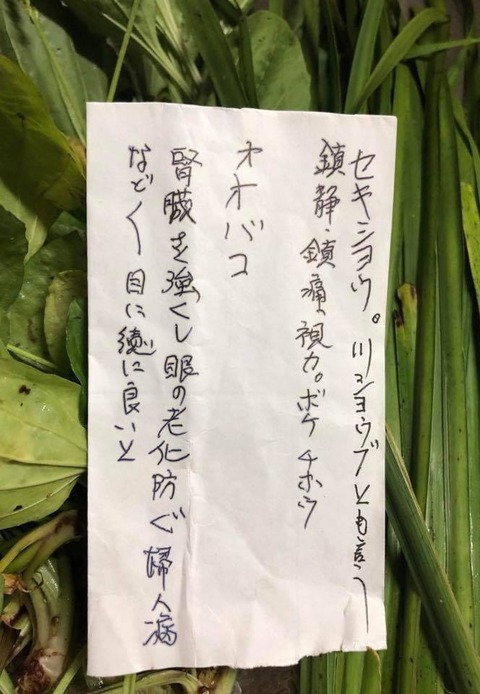 セキショウ。川ショウブとも言う
鎮静、鎮痛、視力。ボケ チホウ
オオバコ
腎臓を強くし眼の老化防ぐ 婦人病
など 目に に良いと